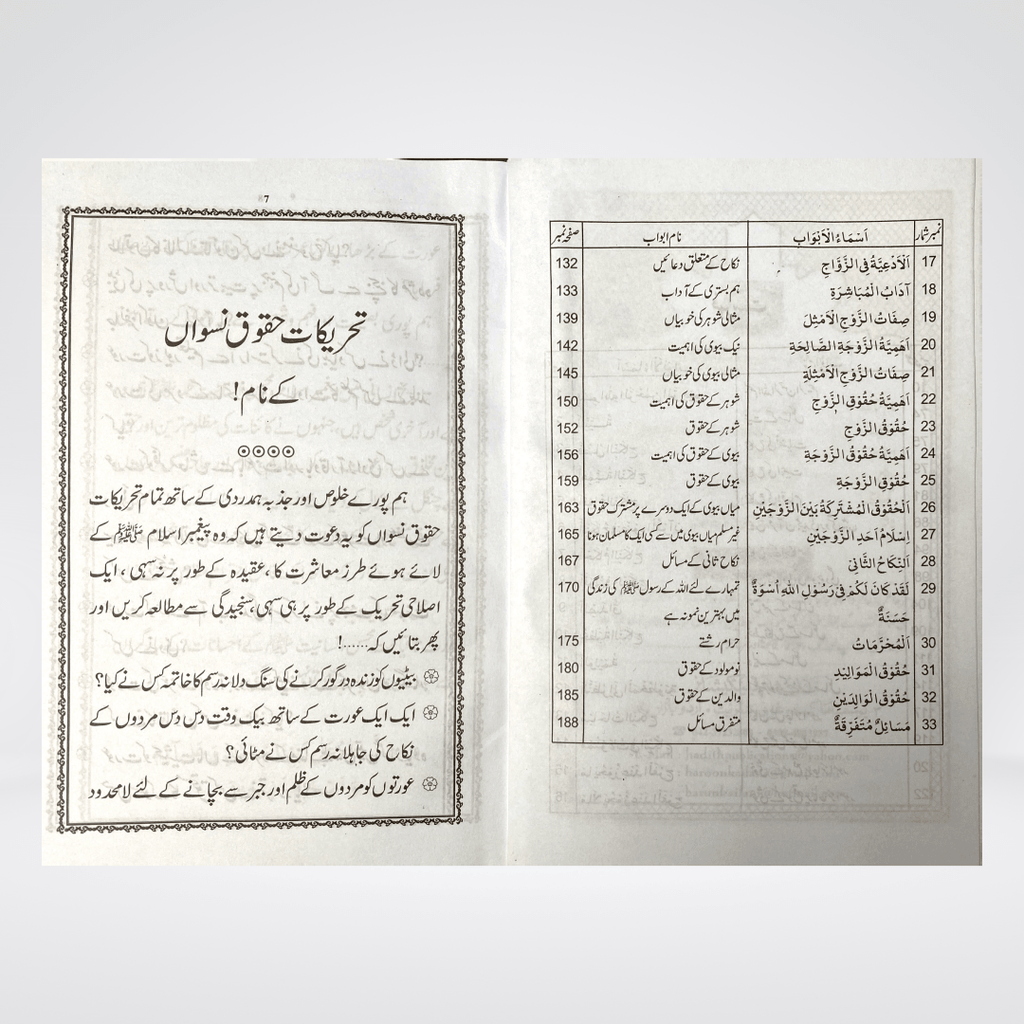 نمبر شمار اَسْمَاءُ الْاَبْوَابِ نام ابواب صفحہ نمبر
17 اَلْاَدْعِيَّةُ فِى الزَّوَّاجِ نکاح کے متعلق دعائیں 132
18 آدَابُ الْمُبَاشِرَةِ ہم بستری کے آداب 133
19 صِفَاتُ الزَّوْجِ الْاَمْثِلَ مثالی شوہر کی خوبیاں 139
20 اَهَمِيَّةُ الزَّوْجَةِ الصَّالِحَةِ نیک بیوی کی اہمیت 142
21 صِفَاتُ الزَّوْجِ الْاَمْثِلَةِ مثالی بیوی کی خوبیاں 145
22 اَهَمِيَّةُ حُقُوْقِ الزَّوْجِ شوہر کے حقوق کی اہمیت 150
23 حُقُوْقُ الزَّوْجِ شوہر کے حقوق 152
24 اَهَمِيَّةُ حُقُوْقِ الزَّوْجَةِ بیوی کے حقوق کی اہمیت 156
25 حُقُوْقِ الزَّوْجَةِ بیوی کے حقوق 159
26 اَلْحُقُوْقُ الْمُشْتَرِكَةُ بَيْنَ الزَّوْجَيْنِ میاں بیوی کے ایک دوسرے پر مشترک حقوق 163
27 اِسْلَامُ اَحَدِ الزَّوْجَيْنِ غیر مسلم میاں بیوی میں سے کسی ایک کا مسلمان ہونا 165
28 اَلنِّكَاحُ الثَّانِىْ نکاح ثانی کے مسائل 167
29 لَقَدْ كَانَ لَكُمْ فِىْ رَسُوْلِ اللهِ اُسْوَةٌ تمہارے لئے اللہ کے رسول ﷺ کی زندگی 170
حَسَنَةٌ میں بہترین نمونہ ہے
30 اَلْمُحَرَّمَاتُ حرام رشتے 175
31 حُقُوْقُ الْمَوَالِيْدِ نومولود کے حقوق 180
32 حُقُوْقُ الْوَالِدَيْنِ والدین کے حقوق 185
33 مَسَائِلٌ مُتَفَرِّقَةٌ متفرق مسائل 188
7
تحریکات حقوق نسواں
کے نام!
ہم پورے خلوص اور جذبہ ہمدردی کے ساتھ تمام تحریکات
حقوق نسواں کو یہ دعوت دیتے ہیں کہ وہ پیغمبر اسلام ﷺ کے
لائے ہوئے طرز معاشرت کا، عقیدہ کے طور پر نہ سہی، ایک
اصلاحی تحریک کے طور پر ہی سہی، سنجیدگی سے مطالعہ کریں اور
پھر بتائیں کہ......!
بیٹیوں کو زندہ درگور کرنے کی سنگ دلانہ رسم کا خاتمہ کس نے کیا؟
ایک ایک عورت کے ساتھ بیک وقت دس دس مردوں کے
نکاح کی جاہلانہ رسم کس نے مٹائی؟
عورتوں کو مردوں کے ظلم اور جبر سے بچانے کے لئے لامحدود